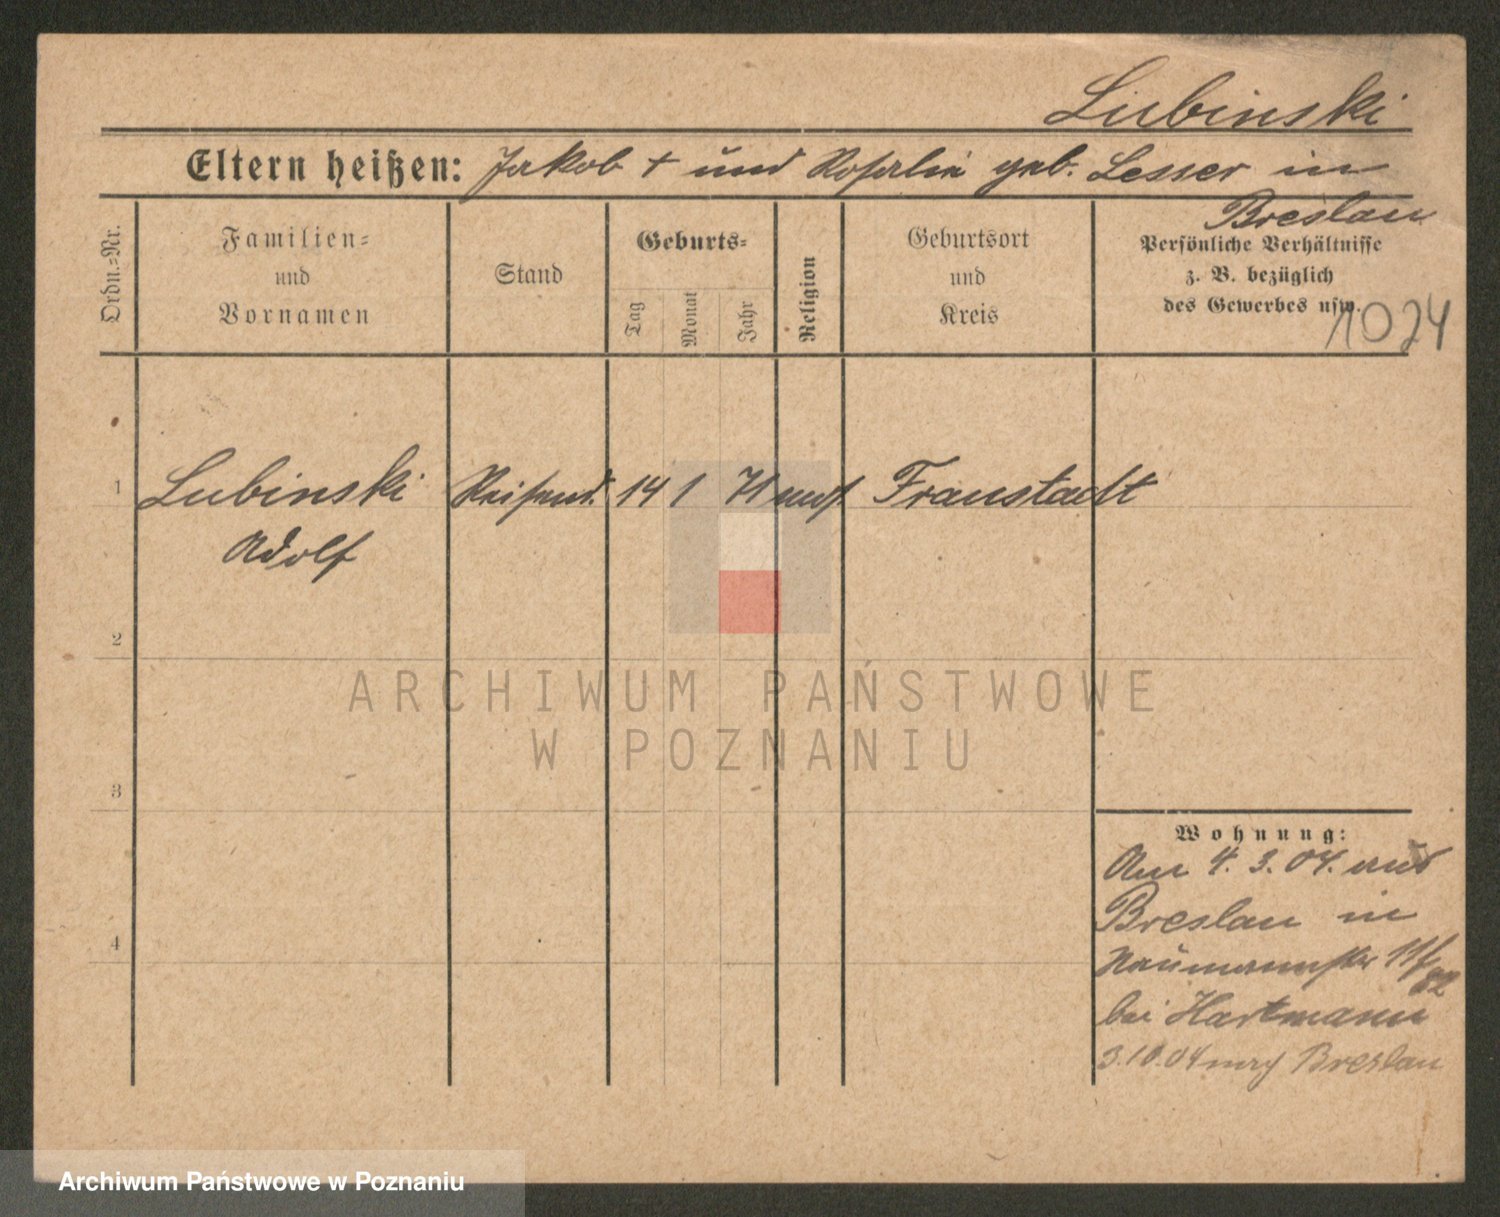 Lubinski
Eltern heißen: Jakob + und Rosalie geb. Lesser in
Breslau
Ordn.=Nr.
Familien=
und
Vornamen
Stand
Geburts=
Tag
Monat
Jahr
Religion
Geburtsort
und
Kreis
Persönliche Verhältnisse
z. B. bezüglich
des Gewerbes usw.
1024
1 Lubinski Reisend. 14 1 71 mos. Fraustadt
Adolf
2
ARCHIWUM PAŃSTWOWE
W POZNANIU
3
Wohnung:
Am 4. 3. 04. aus
Breslau in
Naumannstr 11/
82
4
bei Hartmann
3.10.04 nach Breslau
Archiwum Państwowe w Poznaniu